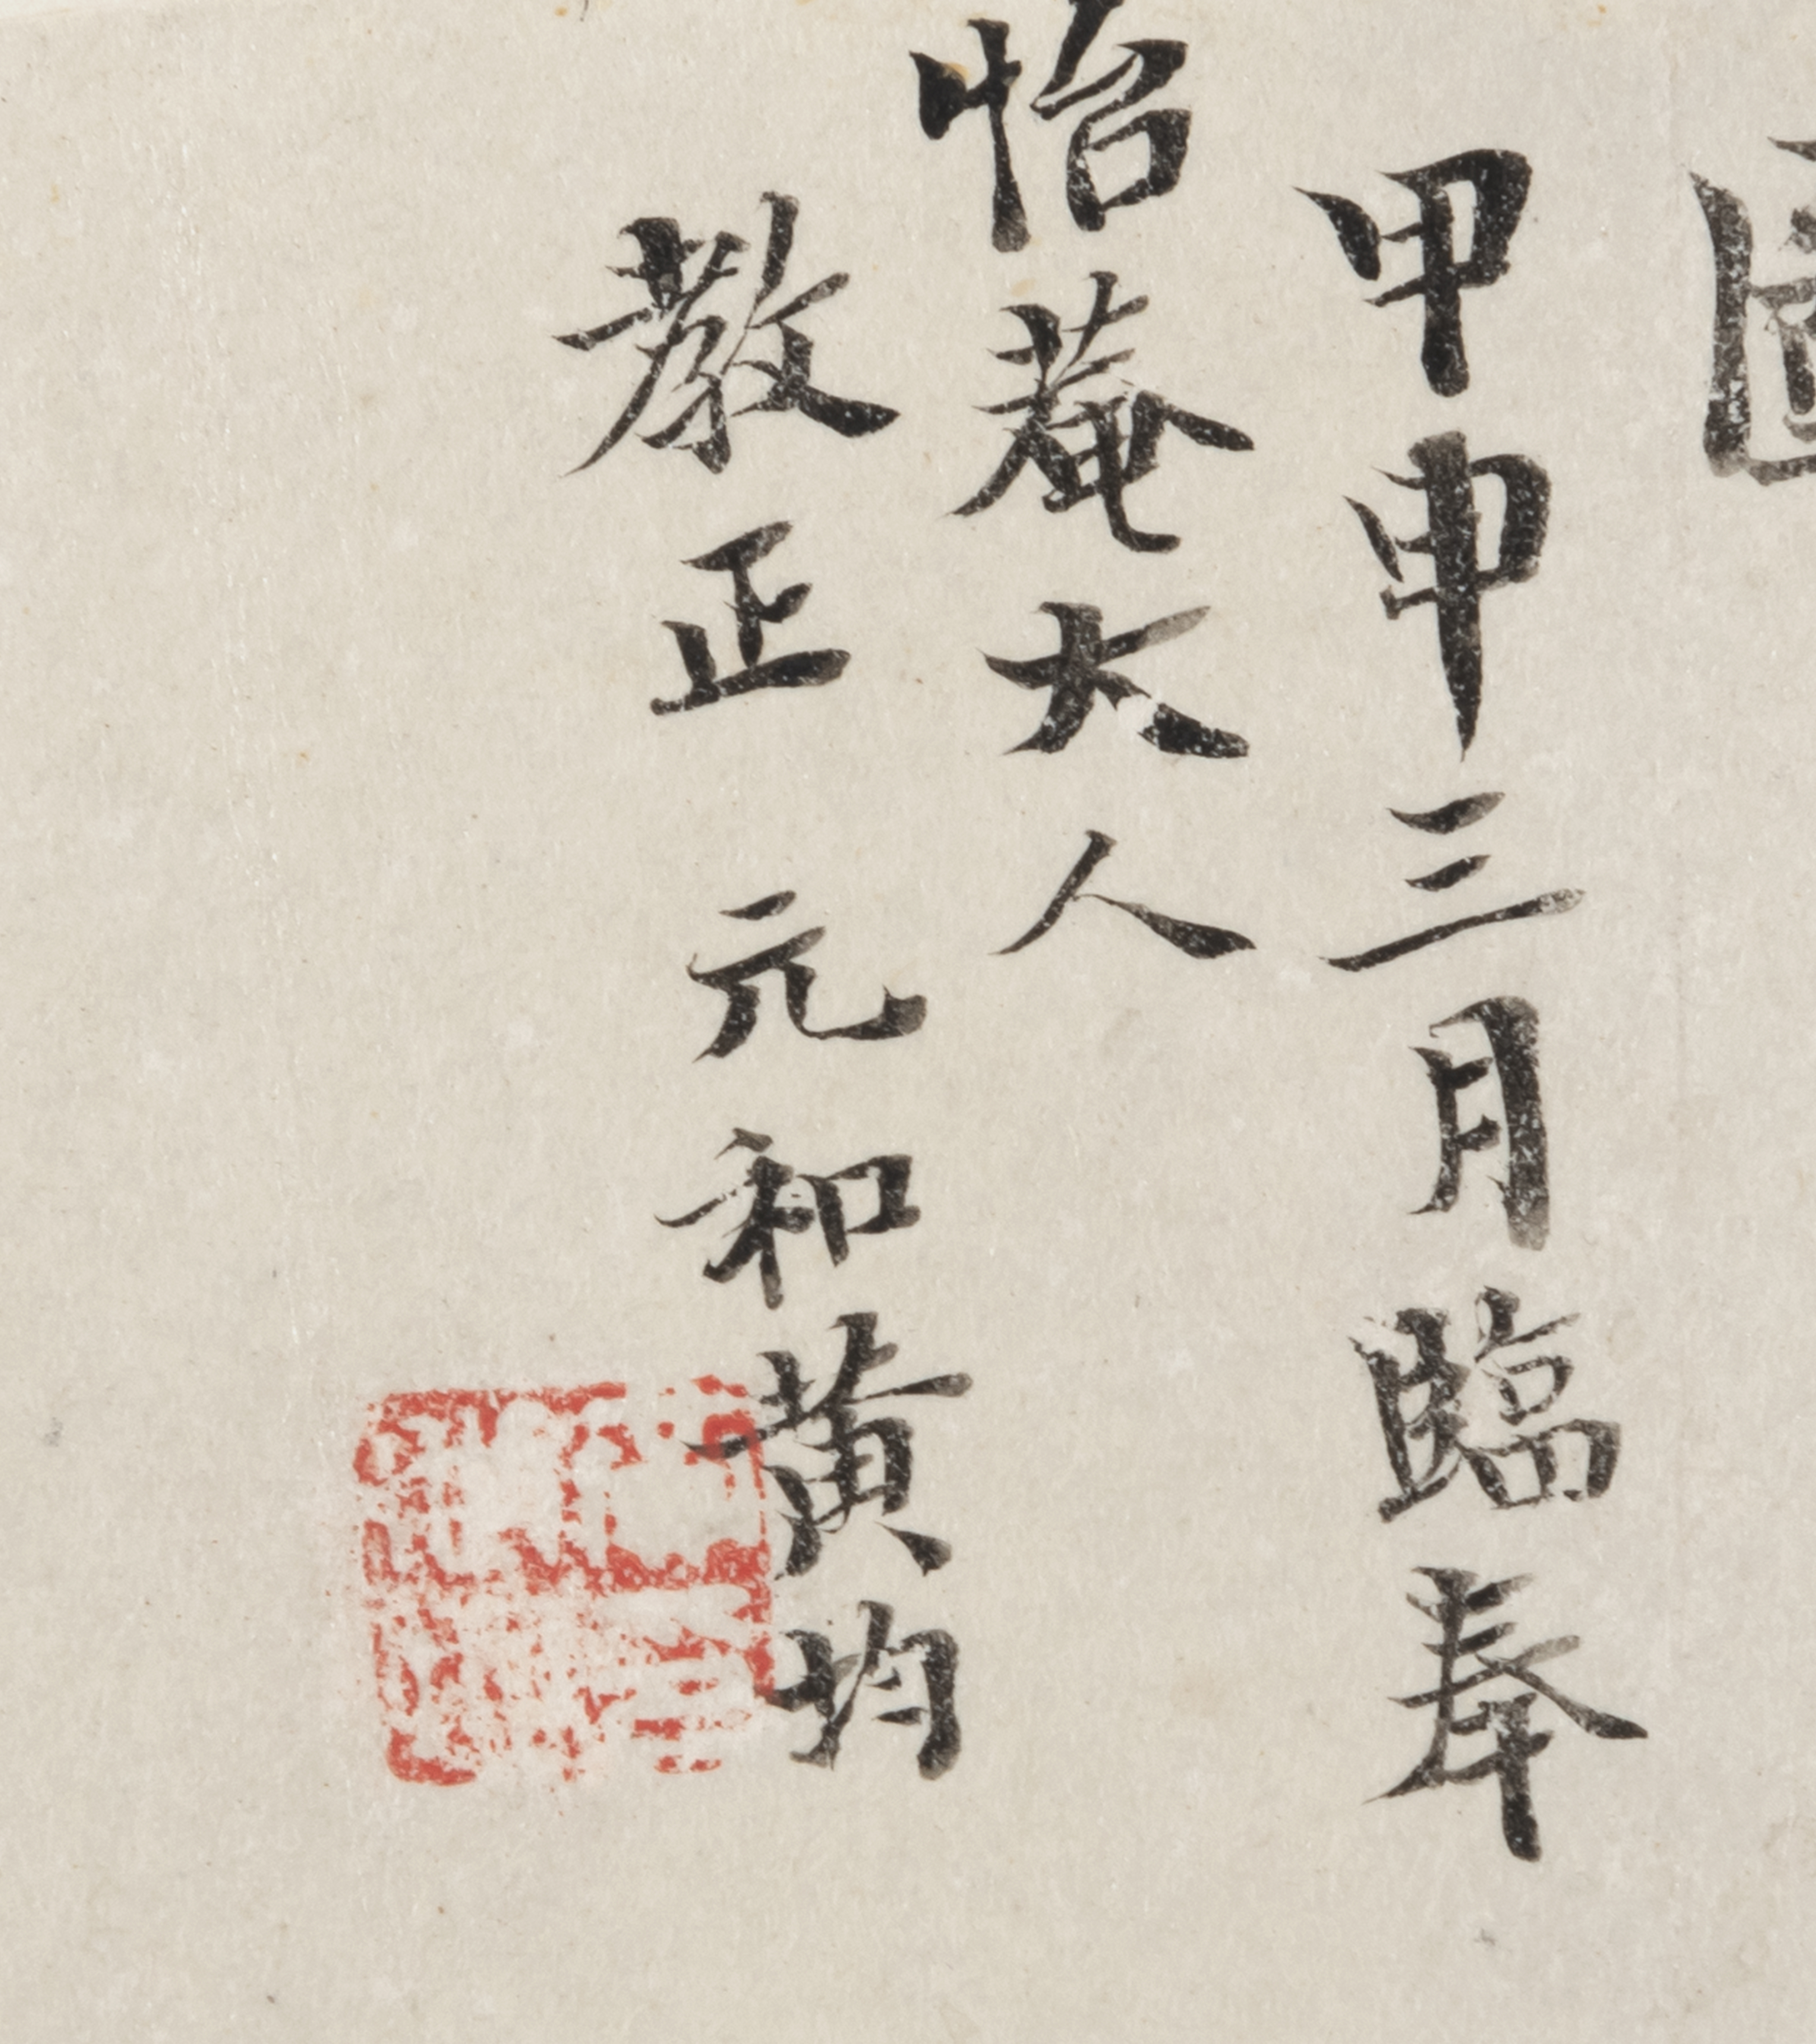 圖
甲申三月臨奉
怡菴大人
教正 元和黃均